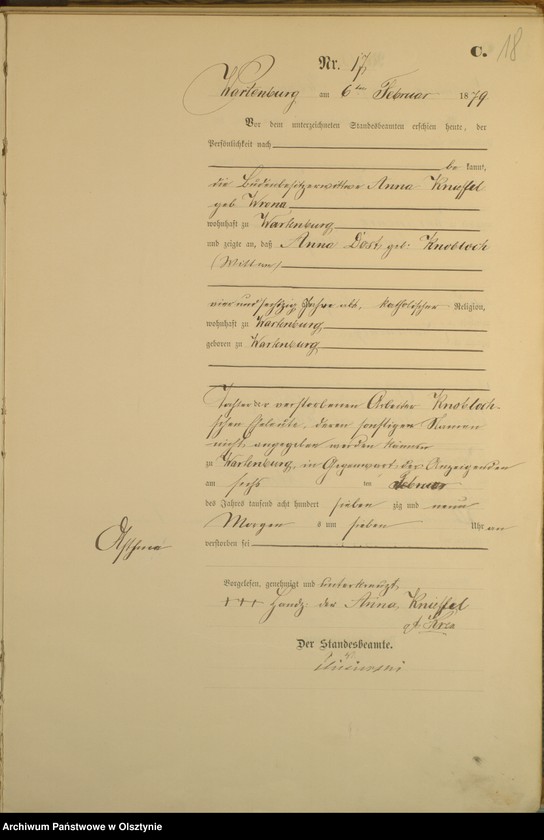 C. 18
Nr. 17
Wartenburg am 6ten Februar 1879
Vor dem unterzeichneten Standesbeamten erschien heute, der
Persönlichkeit nach
be kannt,
die Budenbesitzerwittwe Anna Knuffel
geb Wrona
wohnhaft zu Wartenburg
und zeigte an, daß Anna Dost geb: Knobloch
vier und sechszig Jahre alt, katholischer Religion,
wohnhaft zu Wartenburg
geboren zu Wartenburg
Tochter der verstorbenen Arbeiter Knobloch-
schen Eheleute, deren sonstigen Namen
nicht angegeben werden können
zu Wartenburg, in Gegenwart der Anzeigenden
am sechs ten Februar
des Jahres tausend acht hundert sieben zig und neun
Morgens um sieben Uhr an
Asthma
verstorben sei
Vorgelesen, genehmigt und unterkreuzt
+++ Handz. der Anna Knuffel
Der Standesbeamte.
Archiwum Państwowe w Olsztynie